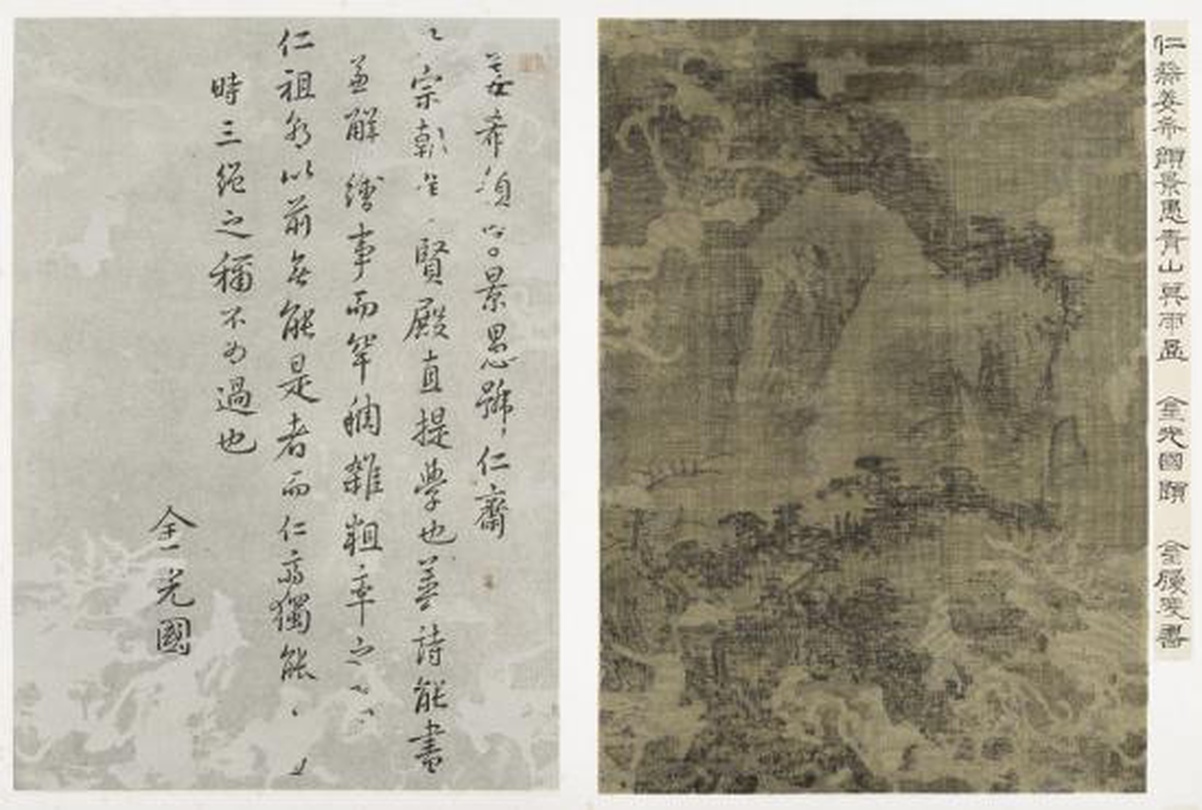 仁齋姜希顔景愚青山 金光國題 金書
姜希景號仁齋
宗朝賢殿直提學也善詩能畫
兼解繪事而罕稠雜粗率之
仁祖朝以前無能是者而仁齋獨能
時三絕之稱不為過也
金光國